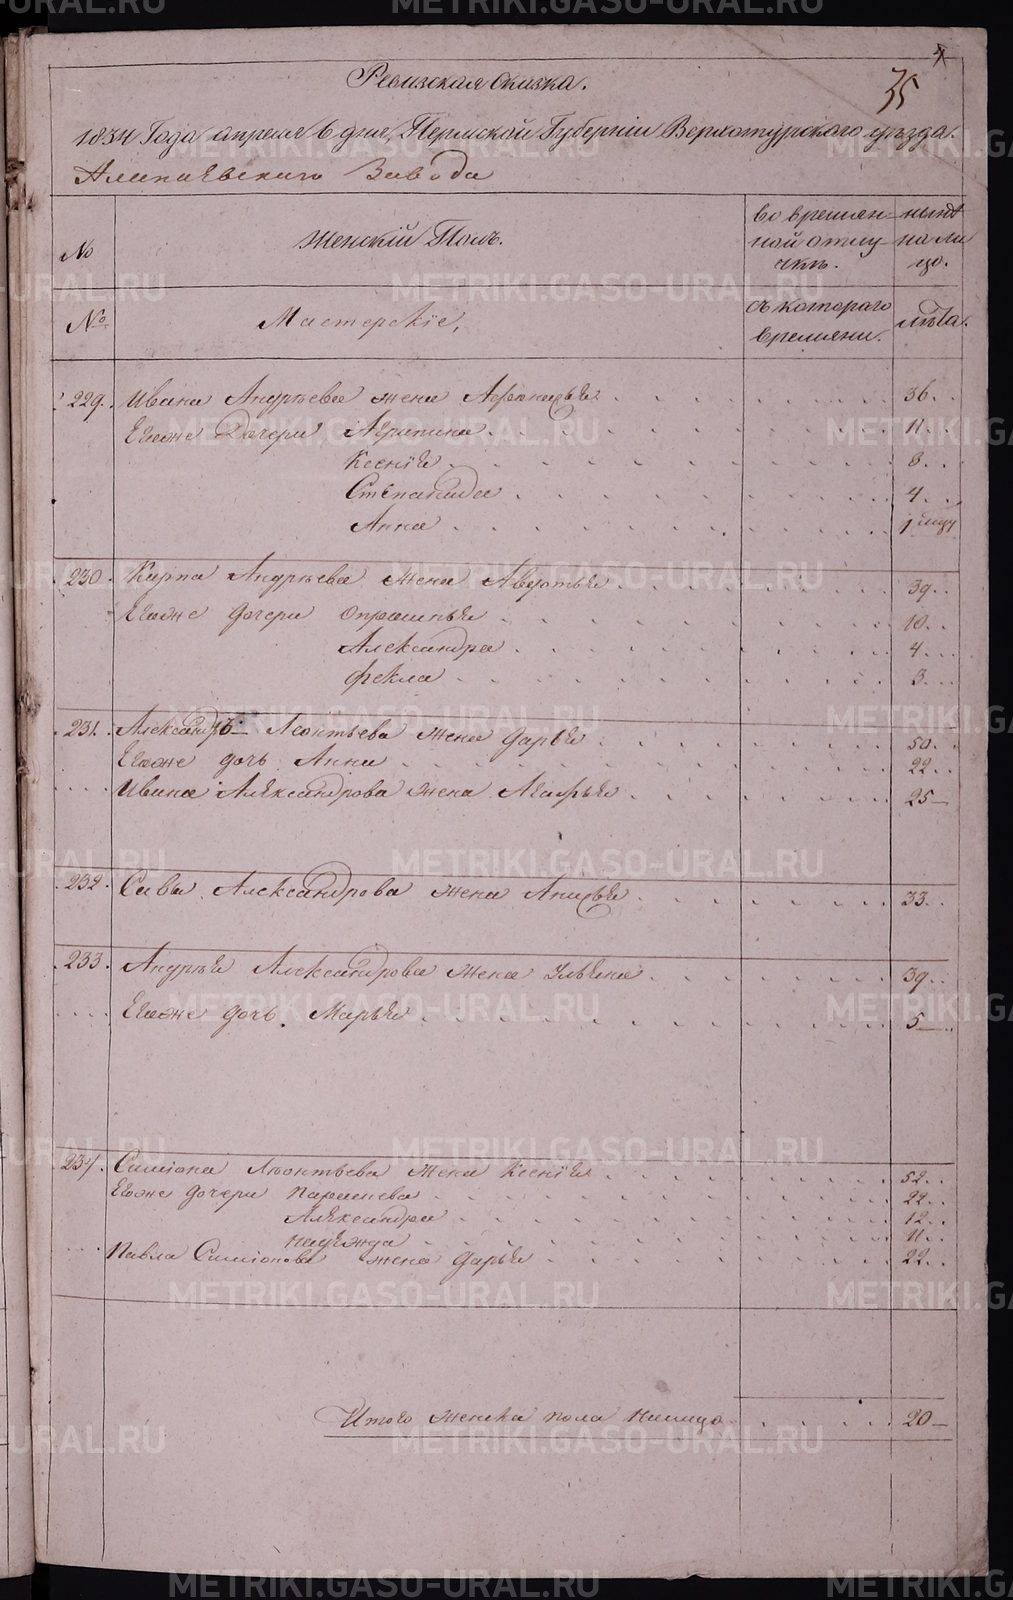 35
Ревизская Сказка.
1834 Года апреля 6 дня, Пермской Губернiи Верхотурскаго уѣзда.
Алапаевскаго Завода
№
Женскiй Полъ.
во времен-
ной отлу-
чкѣ.
нынѣ
на ли
цо.
№
Мастерскiе,
съ котораго
времяни.
лѣта.
229. Ивана Андрѣева жена Афонасья 36
Ево же Дочери Аграпина 11
Ксенiя 8
Степанида 4
Анна 1
230. Карпа Андрѣева жена Авдотья 39
Ево же дочери Опросинья 10
Александра 4
Фекла 3
231. Александръ Леонтьева жена Дарья 50
Ево же дочь Анна 22
Ивана Александрова жена Агафья 25
232. Савы Александрова жена Анисья 33
233. Андрѣя Александрова жена Ульяна 39
Ево же дочь Марья 5
234. Симiона Леонтьева жена Ксенiя 52
Ево же дочери Парасковья 22
Александра 12
Надежда 11
Павла Симiонова жена Дарья 22
Итого женска пола налицо 20
METRIKI.GASO-URAL.RU